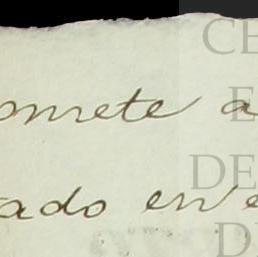 omete a
ado en e
CE
E
DE
D